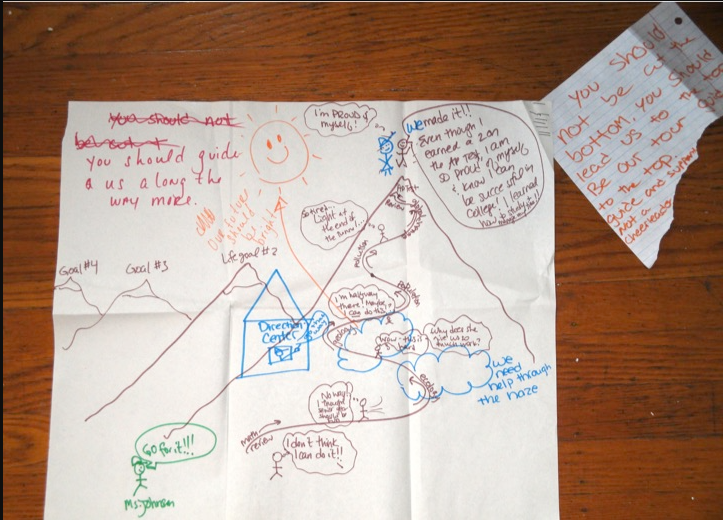 you should not
be cut out
You should guide
us along the
way more.
I'm PROUD of
myself!
We made it!!
Even though I
earned a 2 on
the AP Test, I am
so proud of myself
& know I can
be successful in
College! I learned
how to study &
Our future
should
be
bright!
So tired...
Light at
the end of
the tunnel...
Review
Pollution
Population
Goal #4
Goal #3
Life goal #2
I'm halfway
there! Maybe
I can do this!
Direction
Center
Geology
Wow-this is
hard
Why does she
give us so
much work?
Ecology
We
need
help through
the haze
No way!
I thought
senior year
should be
fun
math
review
I don't think
I can do it!!
GO for it!!!
Ms. Johnson
you should
not be at the
bottom. You should
lead us to the top
Be our tour
guide and support
to the top
Not a
cheerleader